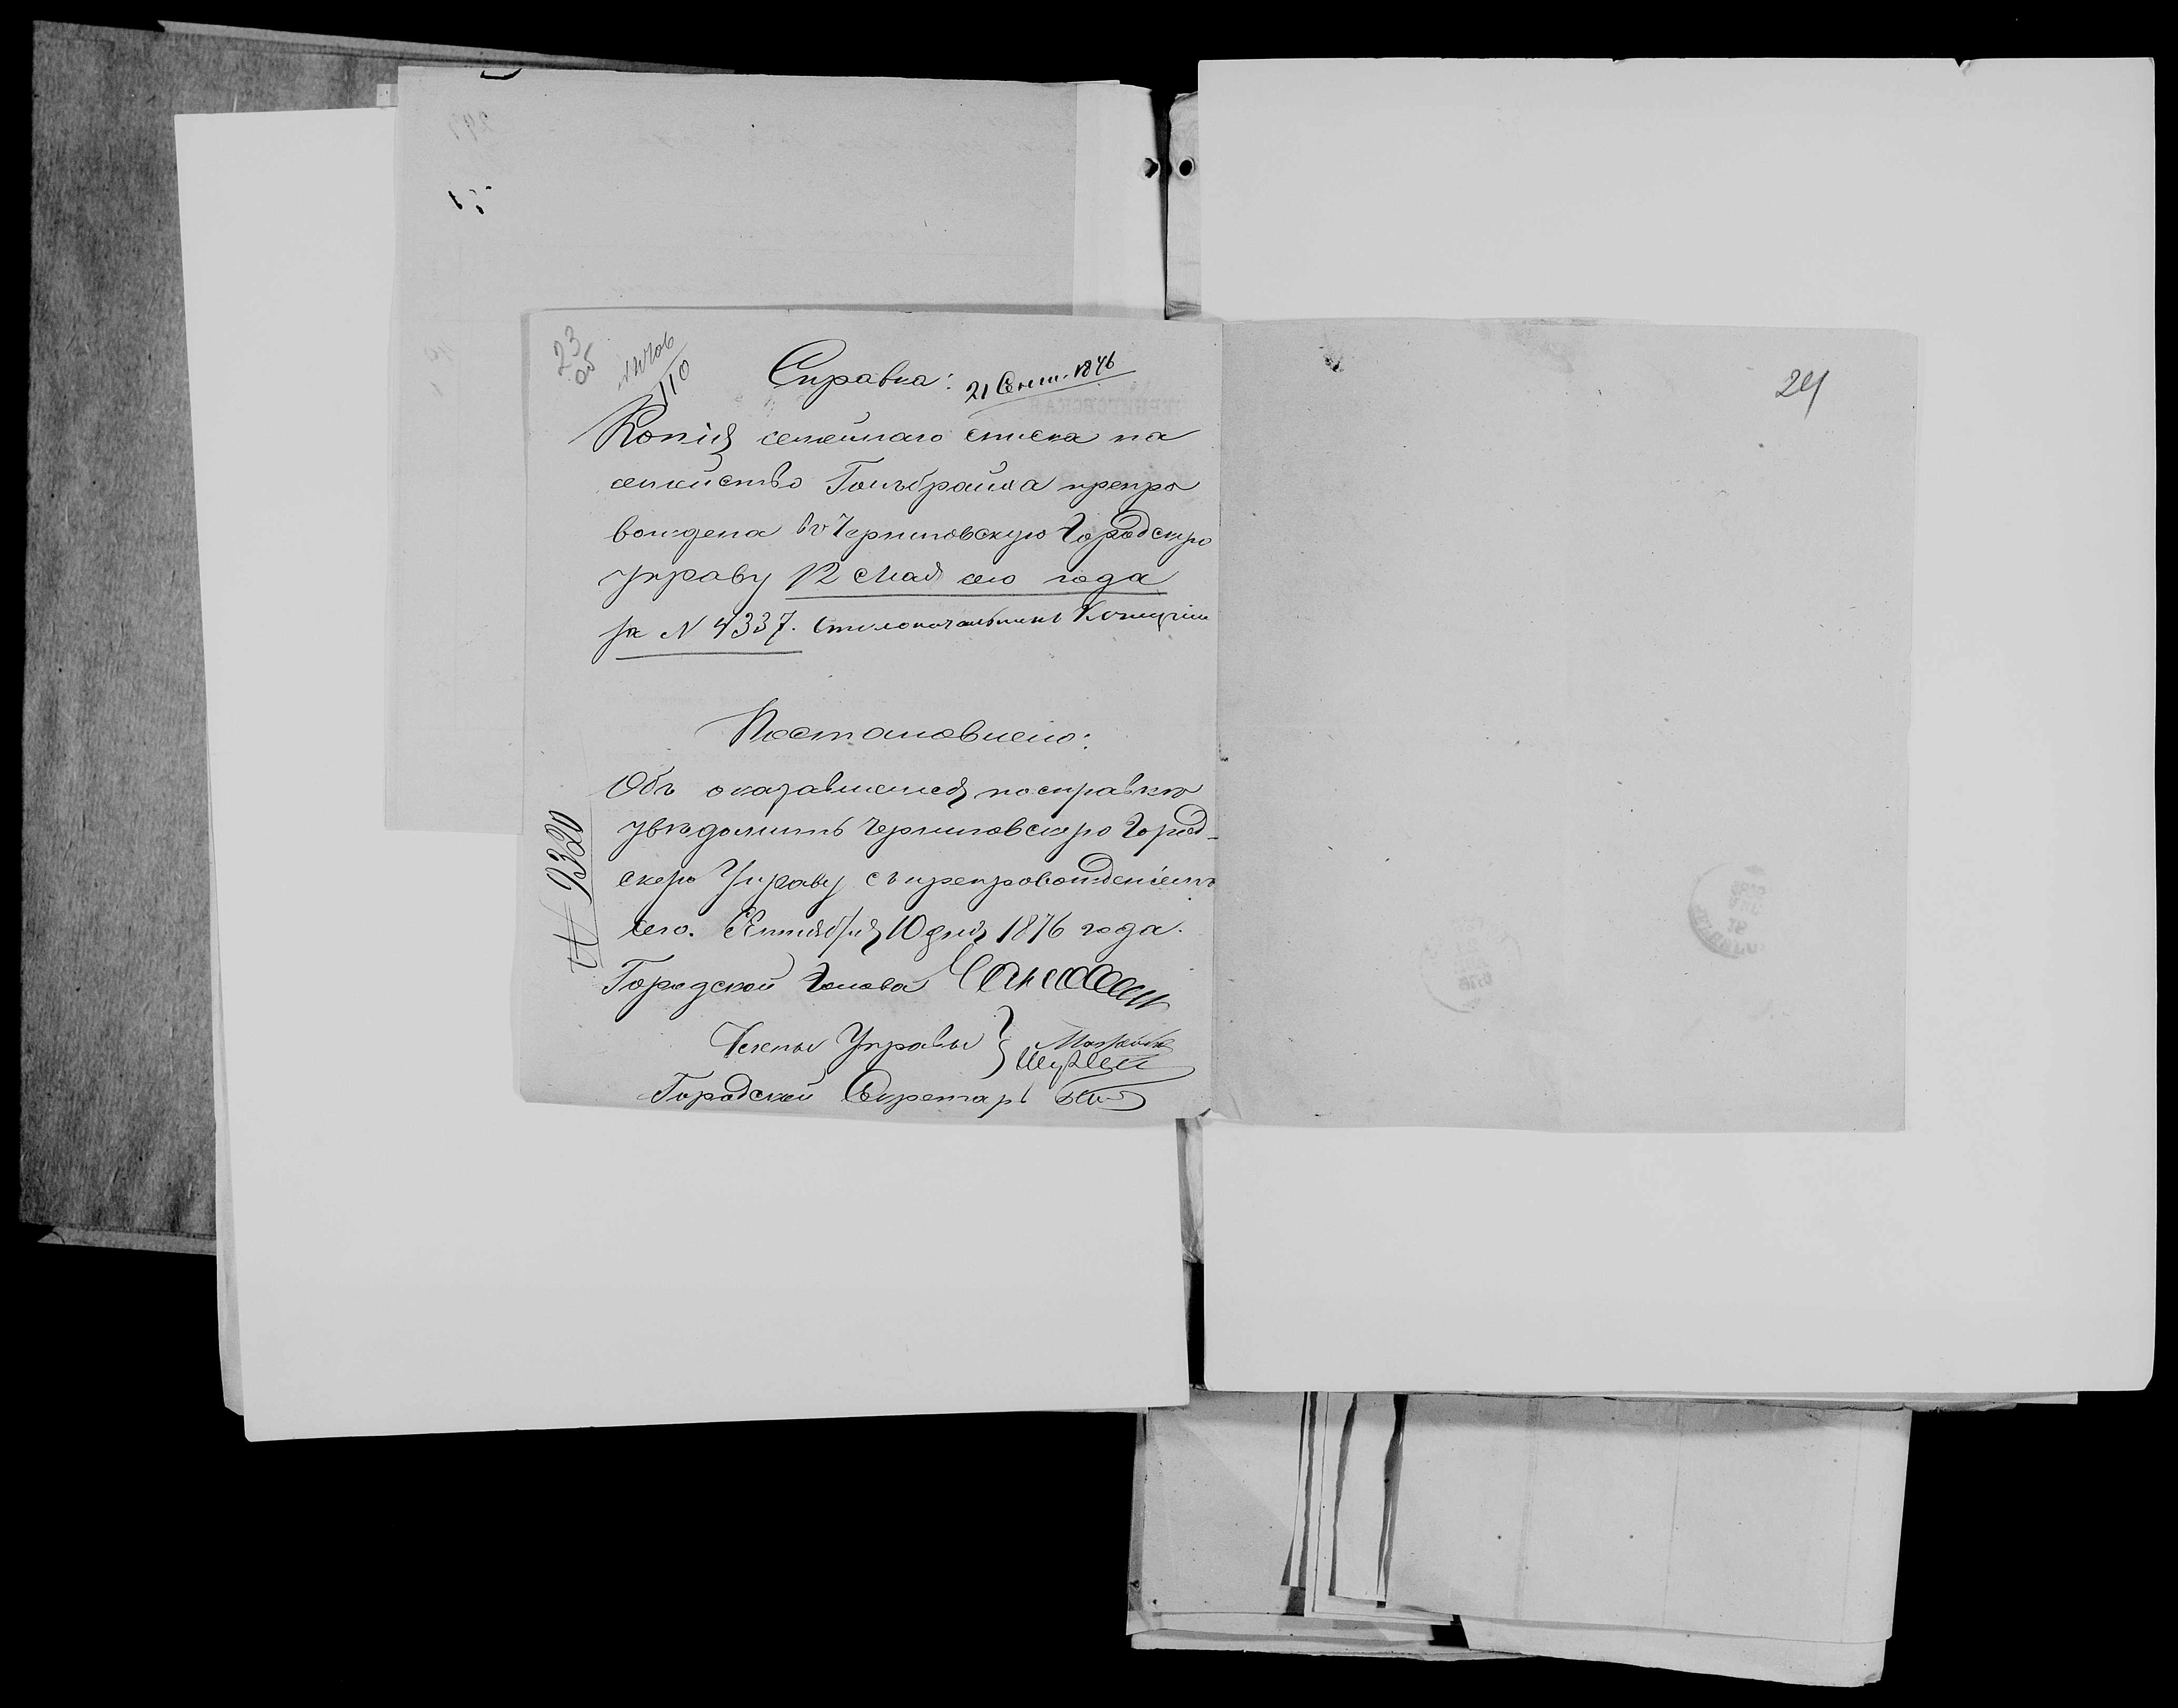 23
об
110
Справка: 21 Сент. 1876
24
Копія семейнаго списка на
семейство Гольдбрайха препро
вождена въ Черниговскую Городскую
управу 12 Мая сего года
за N 4337. Столоначальникъ
Постановлено:
Объ оказавшемся по справкѣ
увѣдомить Черниговскую Город-
скую Управу съ препровожденіемъ
сего. Сентября 10 дня 1876 года.
N 9320
Городской Голова
Члены Управы
Городской Секретарь